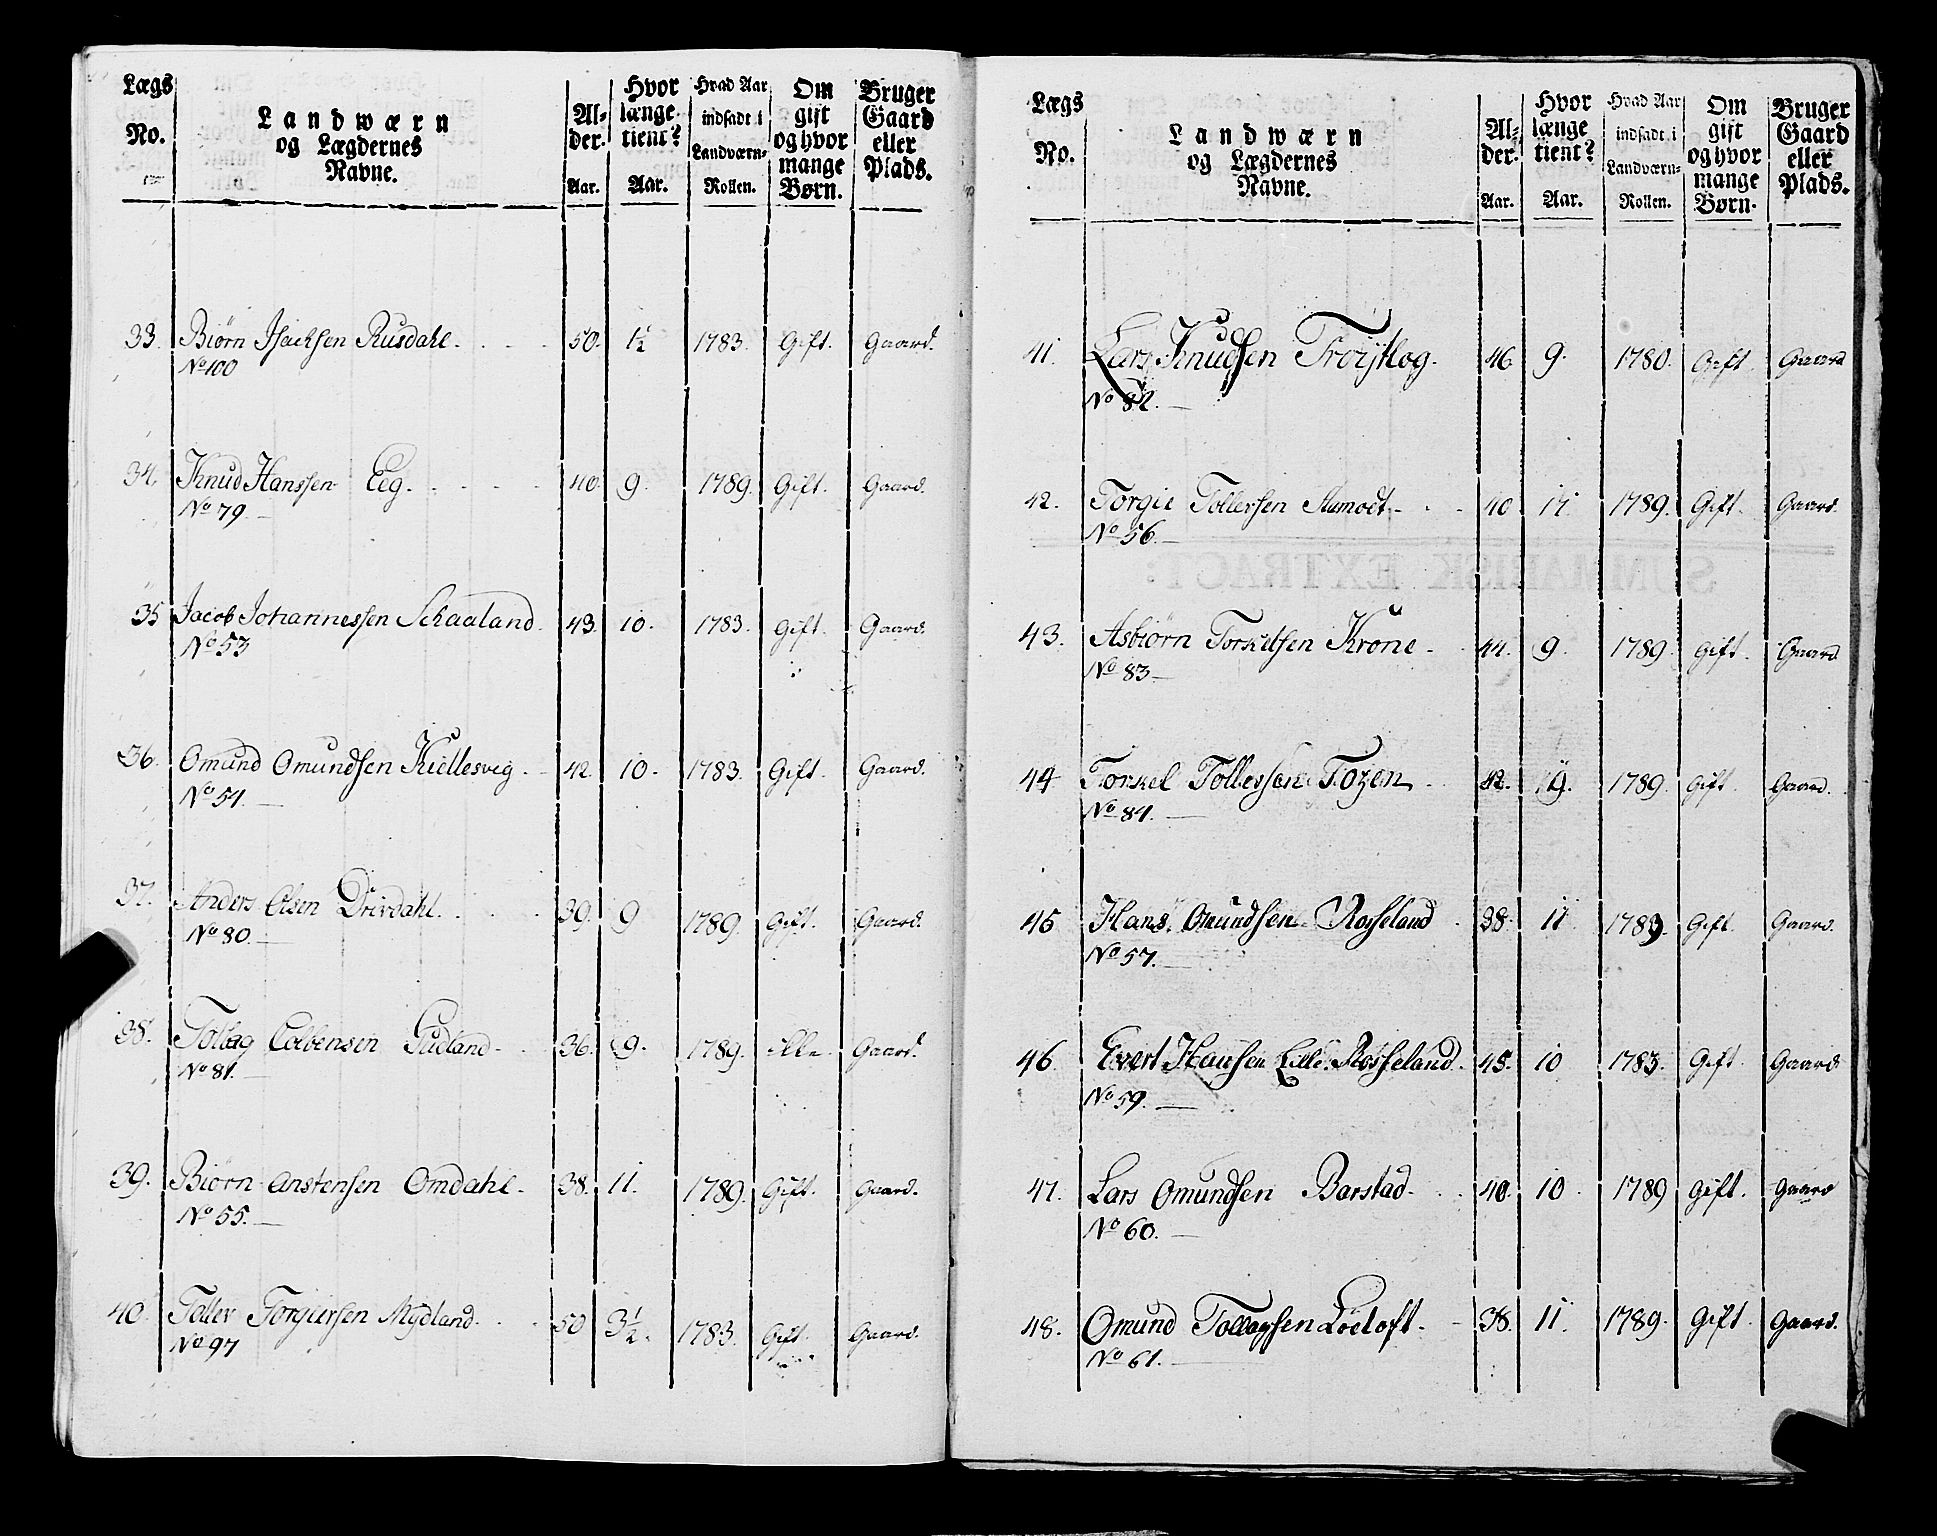 Lægs No.
Landwærn og Lægdernes Navne.
Alder. Aar.
Hvor længe tient? Aar.
Hvad Aar indsadt i Landværn-Rollen.
Om gift og hvor mange Børn.
Bruger Gaard eller Plads.
33. Biørn Isachsen Rusdahl. 50. 1½ 1783. Gift. Gaard.
No 100
34. Knud Hanssen Eeg. 40. 9. 1789. Gift. Gaard.
No 79.
35 Jacob Johannessen Schaaland. 43. 10. 1783. Gift. Gaard.
No 53
36. Omund Omundsen Kiellesvig. 42 10. 1783. Gift. Gaard.
No 54.
37. Anders Olsen Drivdahl. 39. 9 1789. Gift. Gaard.
No 80.
38. Tollag Colbensen Gudland. 36. 9. 1789. ikke. Gaard.
No 81.
39. Biørn Anstensen Omdahl. 38. 11. 1789. Gift. Gaard.
No 55.
40. Toller Torgiersen Mydland. 50 3½. 1783. Gift. Gaard.
No 97
Lægs No.
Landwærn og Lægdernes Navne.
Alder. Aar.
Hvor længe tient? Aar.
Hvad Aar indsadt i Landværn-Rollen.
Om gift og hvor mange Børn.
Bruger Gaard eller Plads.
41. Lars Knudsen Trøysløg. 46 9. 1780. Gift. Gaard
No 82.
42. Torgie Tollefsen Aamodt. 40 11 1789. Gift. Gaard.
No 56.
43. Asbiørn Torkelsen Krone. 44. 9. 1789. Gift. Gaard
No 83
44 Torkel Tollefsen 42. 9. 1789. Gift. Gaard.
No 84.
45 Hans Omundsen Rosseland 38. 11 1789. Gift. Gaard.
No 57.
46. Evert Hansen Lille Rosseland. 45. 10 1783. Gift. Gaard
No 59.
47. Lars Omundsen Barstad. 40. 10. 1789 Gift. Gaard
No 60.
48. Omund Tollagsen Lødtoft. 38. 11. 1789. Gift. Gaard.
No 61.